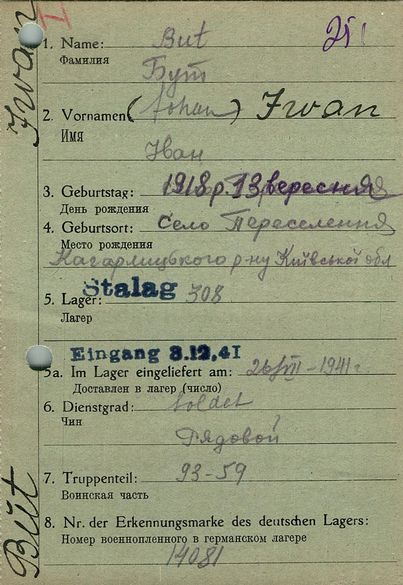 Iwan
But
1. Name: But
Фамилия
Бут
2. Vornamen: (Johan) Iwan
Имя
Иван
3. Geburtstag: 1918 р. 13 вересня
День рождения
4. Geburtsort: село Переселення
Место рождения
Кагарлицького р-ну Київської обл
5. Lager: Stalag 308
Лагер
Eingang 3.12.41
5a. Im Lager eingeliefert am: 26/VII - 1941 г
Доставлен в лагер (число)
6. Dienstgrad: soldat
Чин
Рядовой
7. Truppenteil: 93-59
Воинская часть
8. Nr. der Erkennungsmarke des deutschen Lagers:
Номер военнопленного в германском лагере
14081